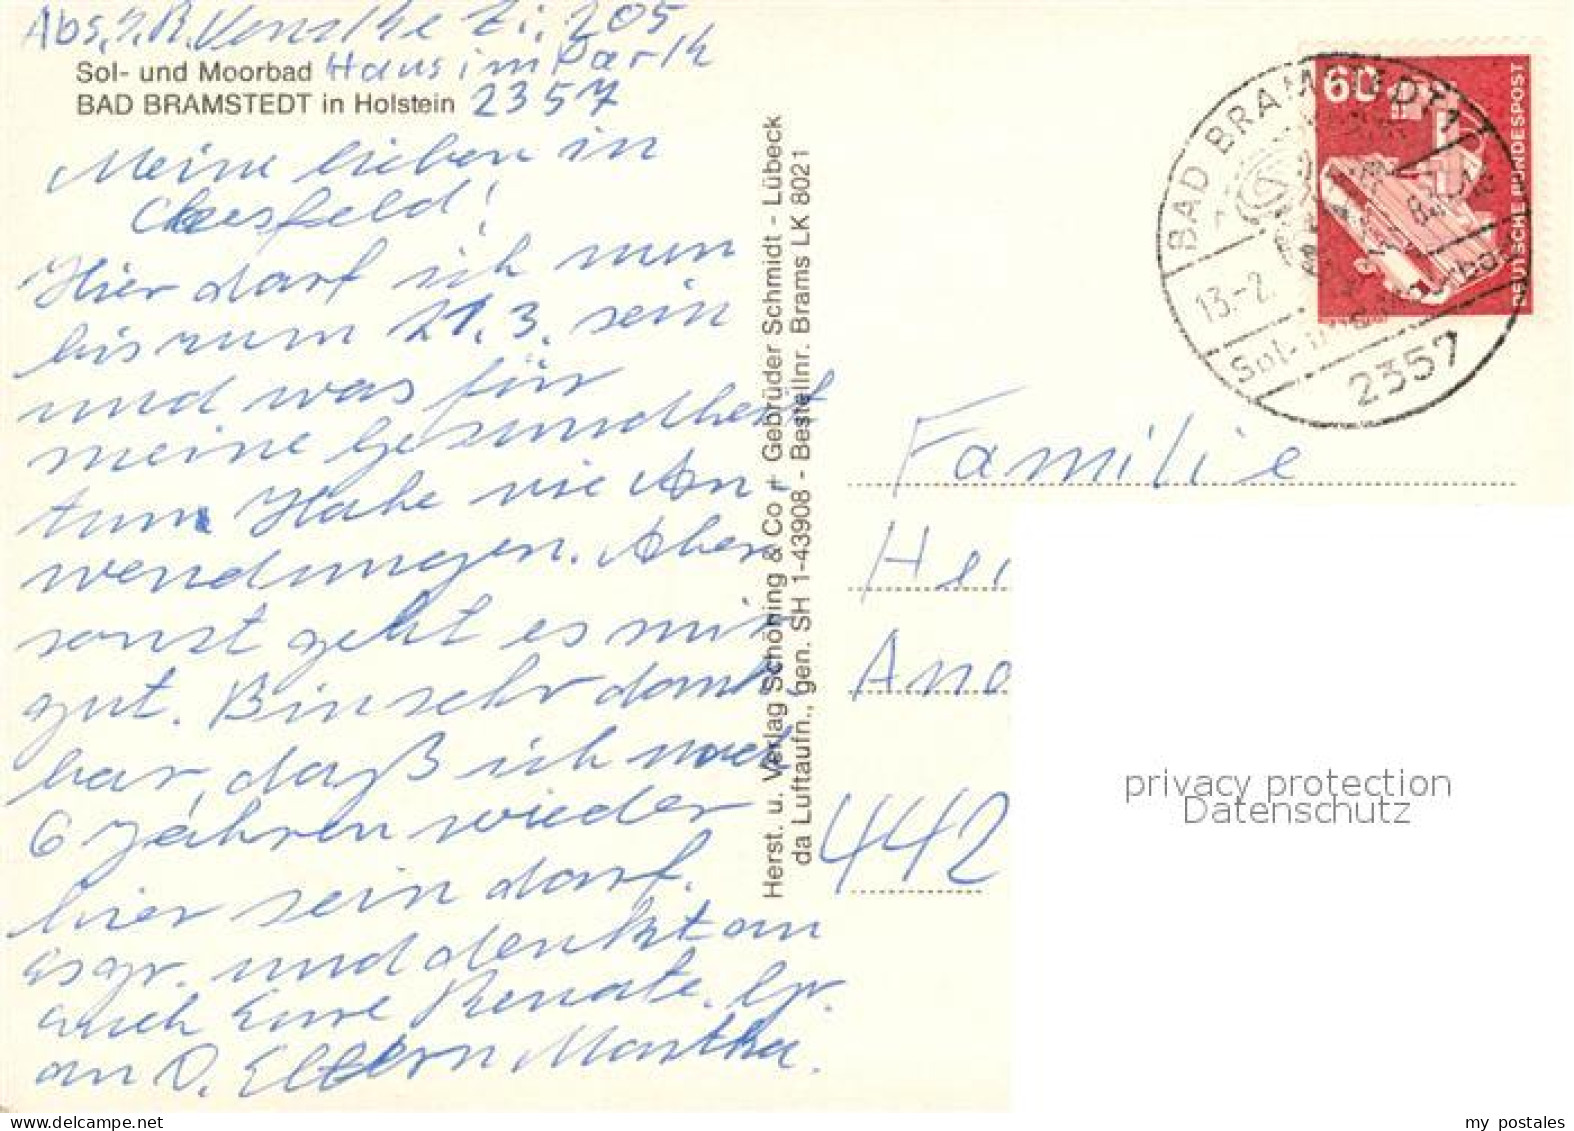 Abs. S. R. Venzke Zi. 205
Sol- und Moorbad Haus im Park
BAD BRAMSTEDT in Holstein 2357
Meine lieben in
Coesfeld!
Hier darf ich nun
bis zum 21.3. sein
und was für
meine Gesundheit
tun. Habe vie An-
wendungen. Aber
sonst geht es mir
gut. Bin sehr dank
bar, daß ich nach
6 Jahren wieder
hier sein darf.
Es gr. und denkt an
auch Eure Renate. Gr.
an D. Eltern Martha.
Herst. u. Verlag Schöning & Co + Gebrüder Schmidt - Lübeck
da Luftaufn., gen. SH 1-43908 - Bestellnr. Brams LK 8021
60
DEUTSCHE BUNDESPOST
BAD BRAMSTEDT 1
13.-2.
Sol- und Moorbad
2357
Familie
Hei
And
442
privacy protection
Datenschutz
my postales